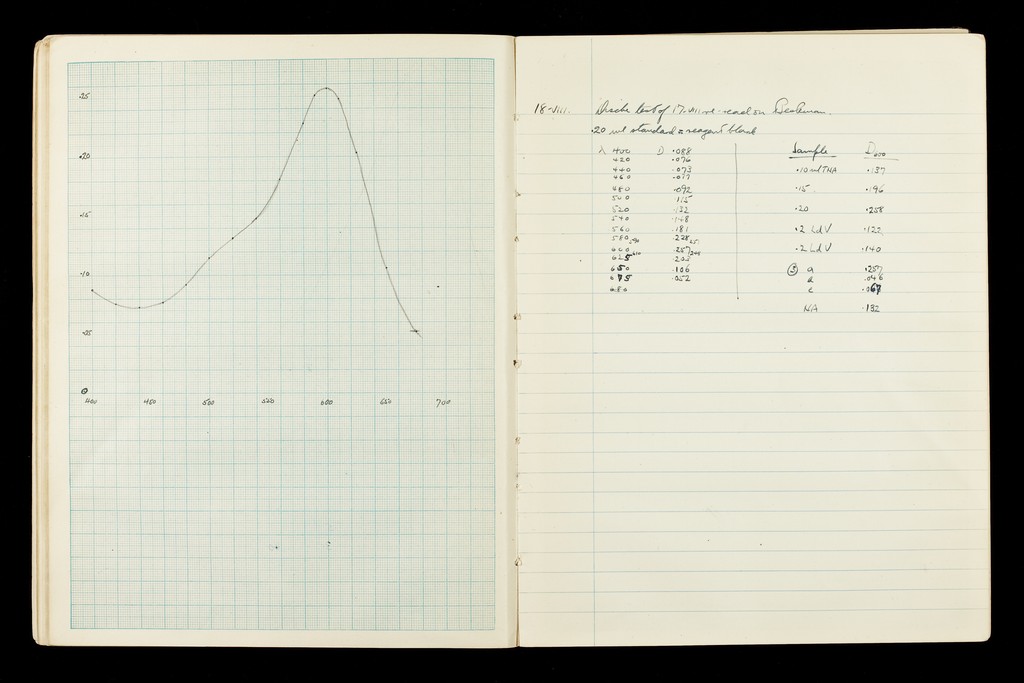 .25
.20
.15
.10
.05
0
400 450 500 550 600 650 700
18-VIII. Dische test of 17.VIII re-read on Beckman.
.20 ml standard c reagent blank
λ 400 D .088
420 .076
440 .073
460 .077
480 .092
500 .115
520 .132
540 .148
560 .181
580 590 .228
600 610 .257
625 .203
650 .106
675 .052
680
Sample D600
.10 ml TNA .137
.15 .196
.20 .258
.2 LdV .122
.2 LdV .140
a .257
d .046
c .067
NA .132